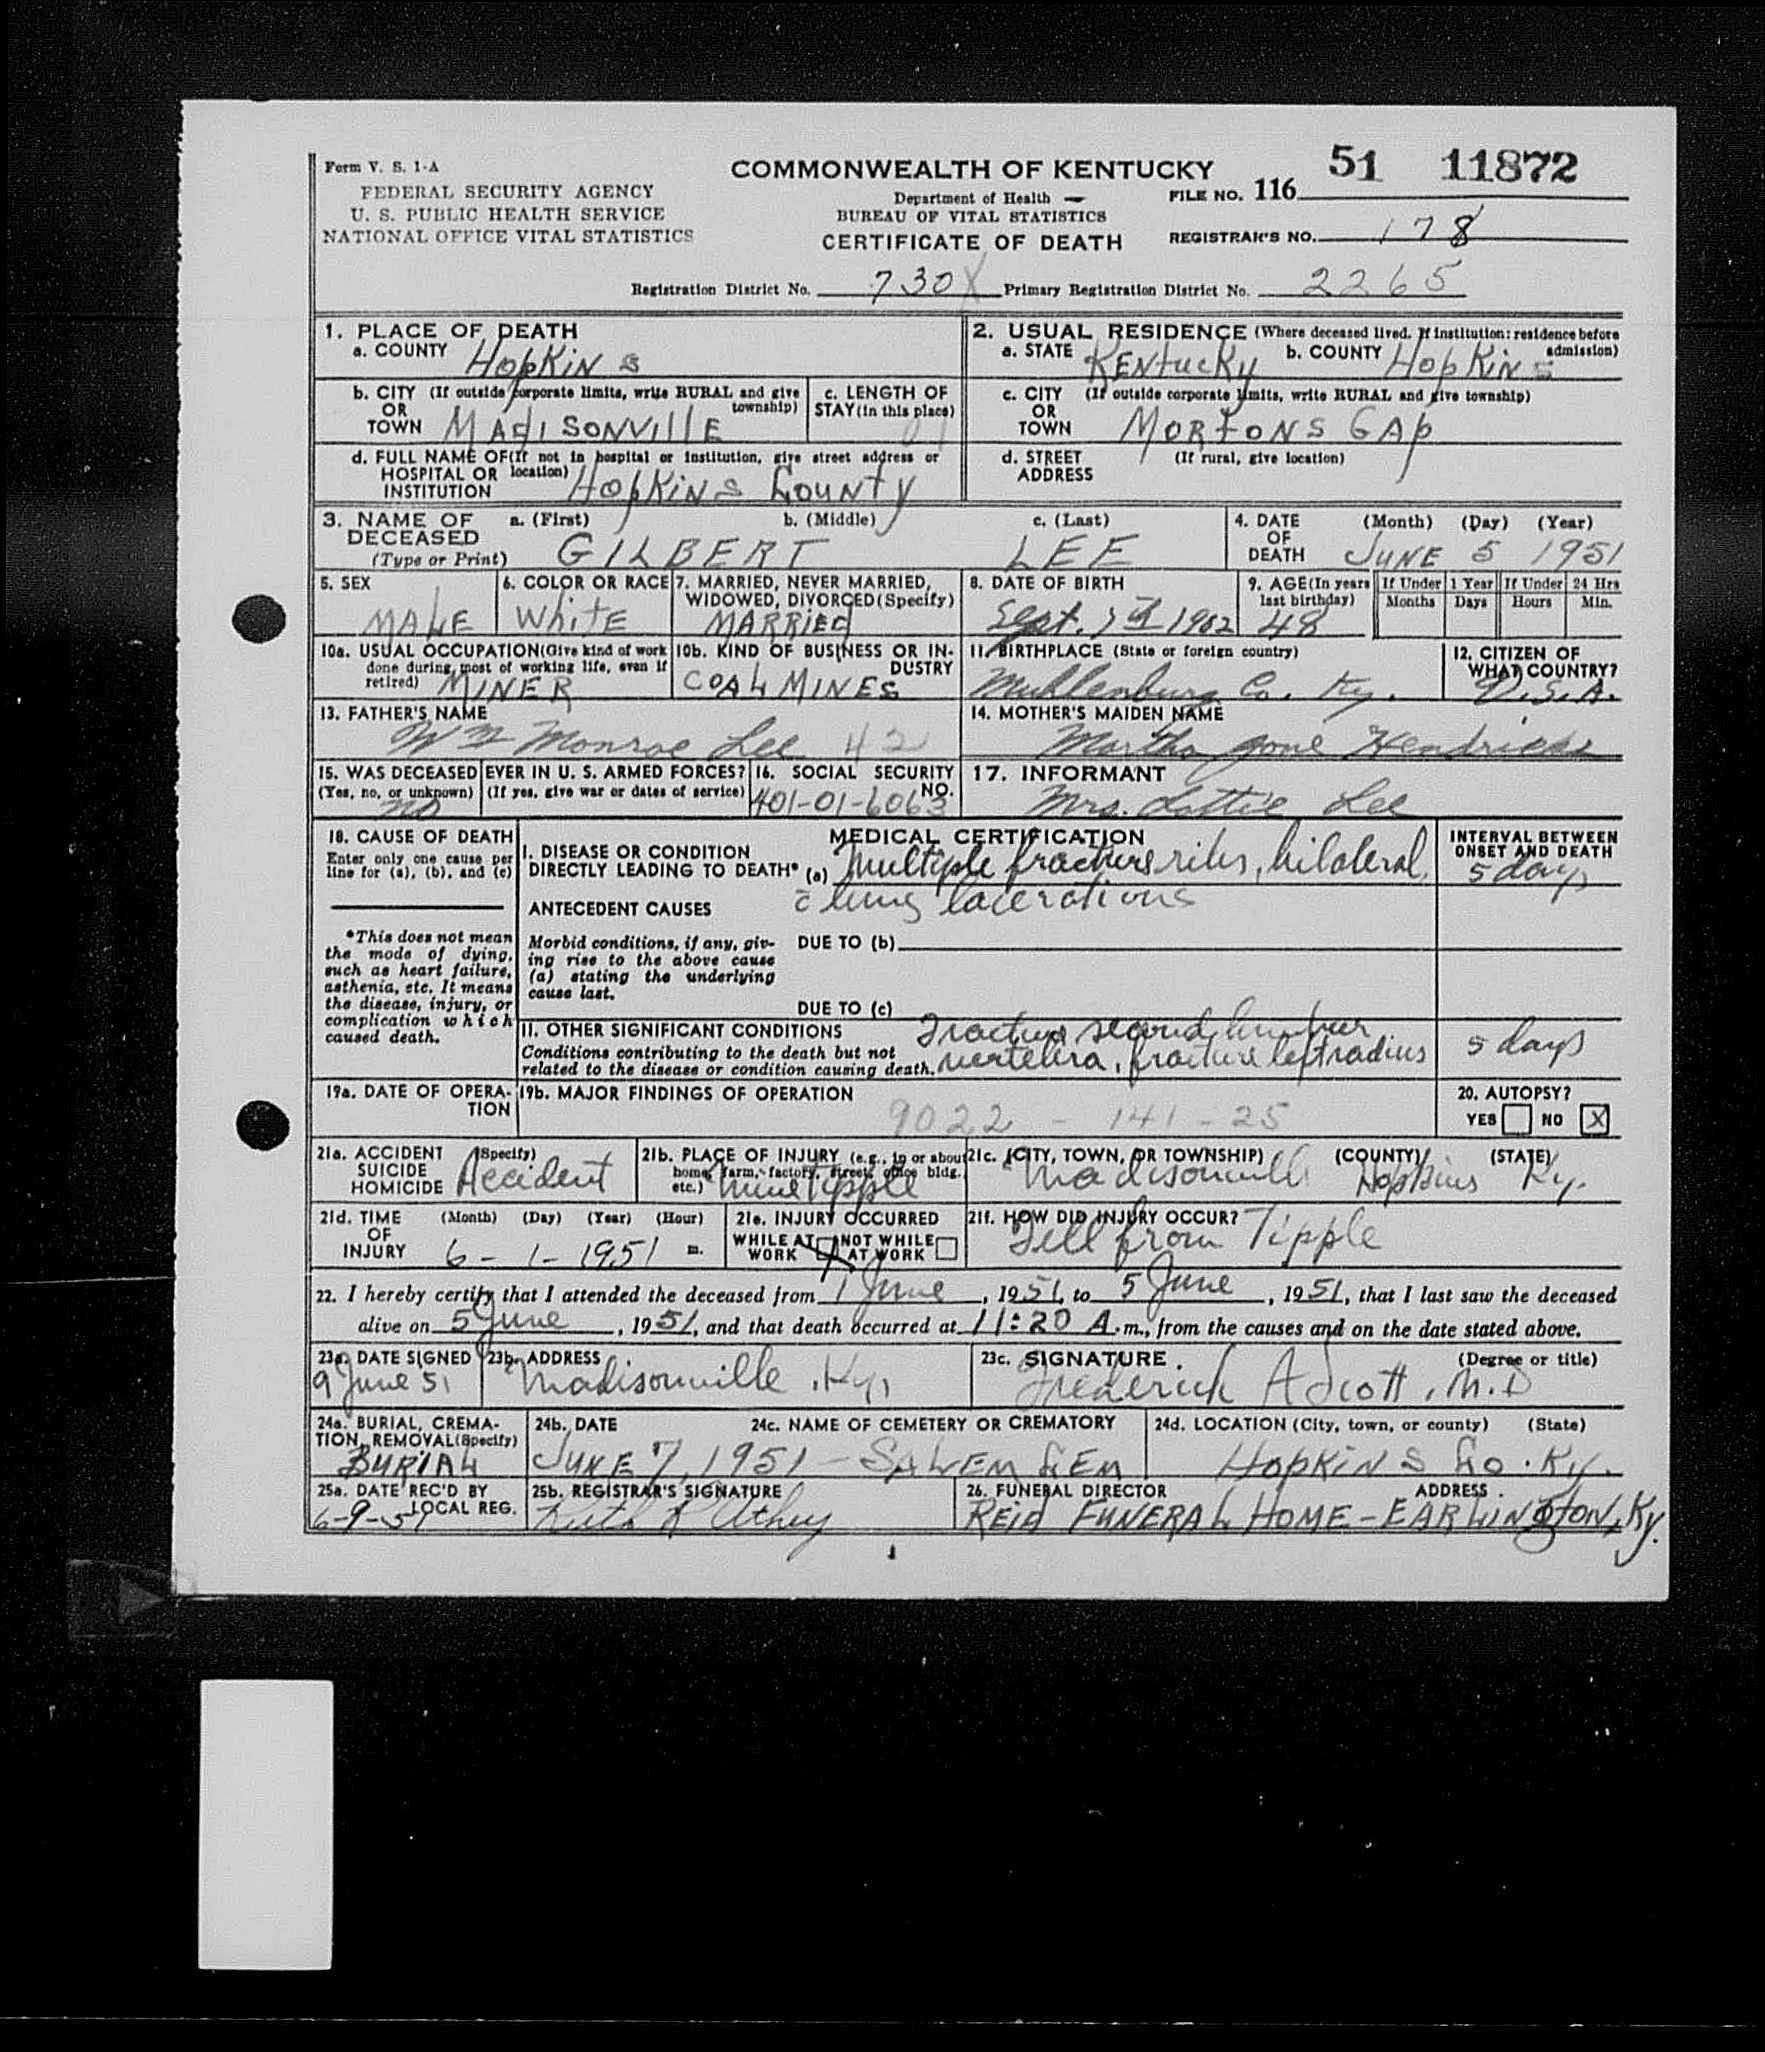 Form V. S. 1-A
FEDERAL SECURITY AGENCY
U. S. PUBLIC HEALTH SERVICE
NATIONAL OFFICE VITAL STATISTICS
COMMONWEALTH OF KENTUCKY
Department of Health
BUREAU OF VITAL STATISTICS
CERTIFICATE OF DEATH
FILE NO. 116 51 11872
REGISTRAR'S NO. 178
Registration District No. 730X Primary Registration District No. 2265
1. PLACE OF DEATH
a. COUNTY Hopkins
2. USUAL RESIDENCE (Where deceased lived. If institution: residence before admission)
a. STATE Kentucky b. COUNTY Hopkins
b. CITY (If outside corporate limits, write RURAL and give township) OR TOWN Madisonville
c. LENGTH OF STAY (in this place)
c. CITY (If outside corporate limits, write RURAL and give township) OR TOWN Mortons Gap
d. FULL NAME OF (If not in hospital or institution, give street address or location) HOSPITAL OR INSTITUTION Hopkins County
d. STREET ADDRESS (If rural, give location)
3. NAME OF DECEASED (Type or Print) a. (First) GILBERT b. (Middle) c. (Last) LEE
4. DATE OF DEATH (Month) (Day) (Year) JUNE 5 1951
5. SEX MALE
6. COLOR OR RACE White
7. MARRIED, NEVER MARRIED, WIDOWED, DIVORCED (Specify) MARRIED
8. DATE OF BIRTH Sept. 1902
9. AGE (In years last birthday) 48
If Under 1 Year Months Days
If Under 24 Hrs Hours Min.
10a. USUAL OCCUPATION (Give kind of work done during most of working life, even if retired) MINER
10b. KIND OF BUSINESS OR INDUSTRY COAL MINES
11. BIRTHPLACE (State or foreign country) Muhlenburg Co. Ky.
12. CITIZEN OF WHAT COUNTRY? U.S.A.
13. FATHER'S NAME Wm Monroe Lee 42
14. MOTHER'S MAIDEN NAME Martha Jane Hendricks
15. WAS DECEASED EVER IN U. S. ARMED FORCES? (Yes, no, or unknown) (If yes, give war or dates of service) no
16. SOCIAL SECURITY NO. 401-01-6063
17. INFORMANT Mrs. Lottie Lee
18. CAUSE OF DEATH
Enter only one cause per line for (a), (b), and (c)
*This does not mean the mode of dying, such as heart failure, asthenia, etc. It means the disease, injury, or complication which caused death.
MEDICAL CERTIFICATION
I. DISEASE OR CONDITION DIRECTLY LEADING TO DEATH* (a) Multiple fractures ribs, bilateral,
c̄ lung lacerations
INTERVAL BETWEEN ONSET AND DEATH
5 days
ANTECEDENT CAUSES
Morbid conditions, if any, giving rise to the above cause (a) stating the underlying cause last.
DUE TO (b)
DUE TO (c)
II. OTHER SIGNIFICANT CONDITIONS
Conditions contributing to the death but not related to the disease or condition causing death.
Fracture second lumbar
vertebra, fracture left radius
5 days
19a. DATE OF OPERATION
19b. MAJOR FINDINGS OF OPERATION
9022 - 141 - 25
20. AUTOPSY? YES NO X
21a. ACCIDENT SUICIDE HOMICIDE (Specify) Accident
21b. PLACE OF INJURY (e.g., in or about home, farm, factory, street, office bldg. etc.) Mine Tipple
21c. (CITY, TOWN, OR TOWNSHIP) (COUNTY) (STATE) Madisonville Hopkins Ky.
21d. TIME OF INJURY (Month) (Day) (Year) (Hour) 6-1-1951 m.
21e. INJURY OCCURRED WHILE AT WORK X NOT WHILE AT WORK
21f. HOW DID INJURY OCCUR? Fell from Tipple
22. I hereby certify that I attended the deceased from 1 June, 1951, to 5 June, 1951, that I last saw the deceased
alive on 5 June, 1951, and that death occurred at 11:20 A.m., from the causes and on the date stated above.
23a. DATE SIGNED 9 June 51
23b. ADDRESS Madisonville, Ky,
23c. SIGNATURE (Degree or title) Frederick A Scott, M.D
24a. BURIAL, CREMATION, REMOVAL (Specify) BURIAL
24b. DATE JUNE 7, 1951
24c. NAME OF CEMETERY OR CREMATORY SALEM CEM
24d. LOCATION (City, town, or county) (State) HOPKINS Co. Ky.
25a. DATE REC'D BY LOCAL REG. 6-9-51
25b. REGISTRAR'S SIGNATURE
26. FUNERAL DIRECTOR ADDRESS
REID FUNERAL HOME - EARLINGTON, Ky.